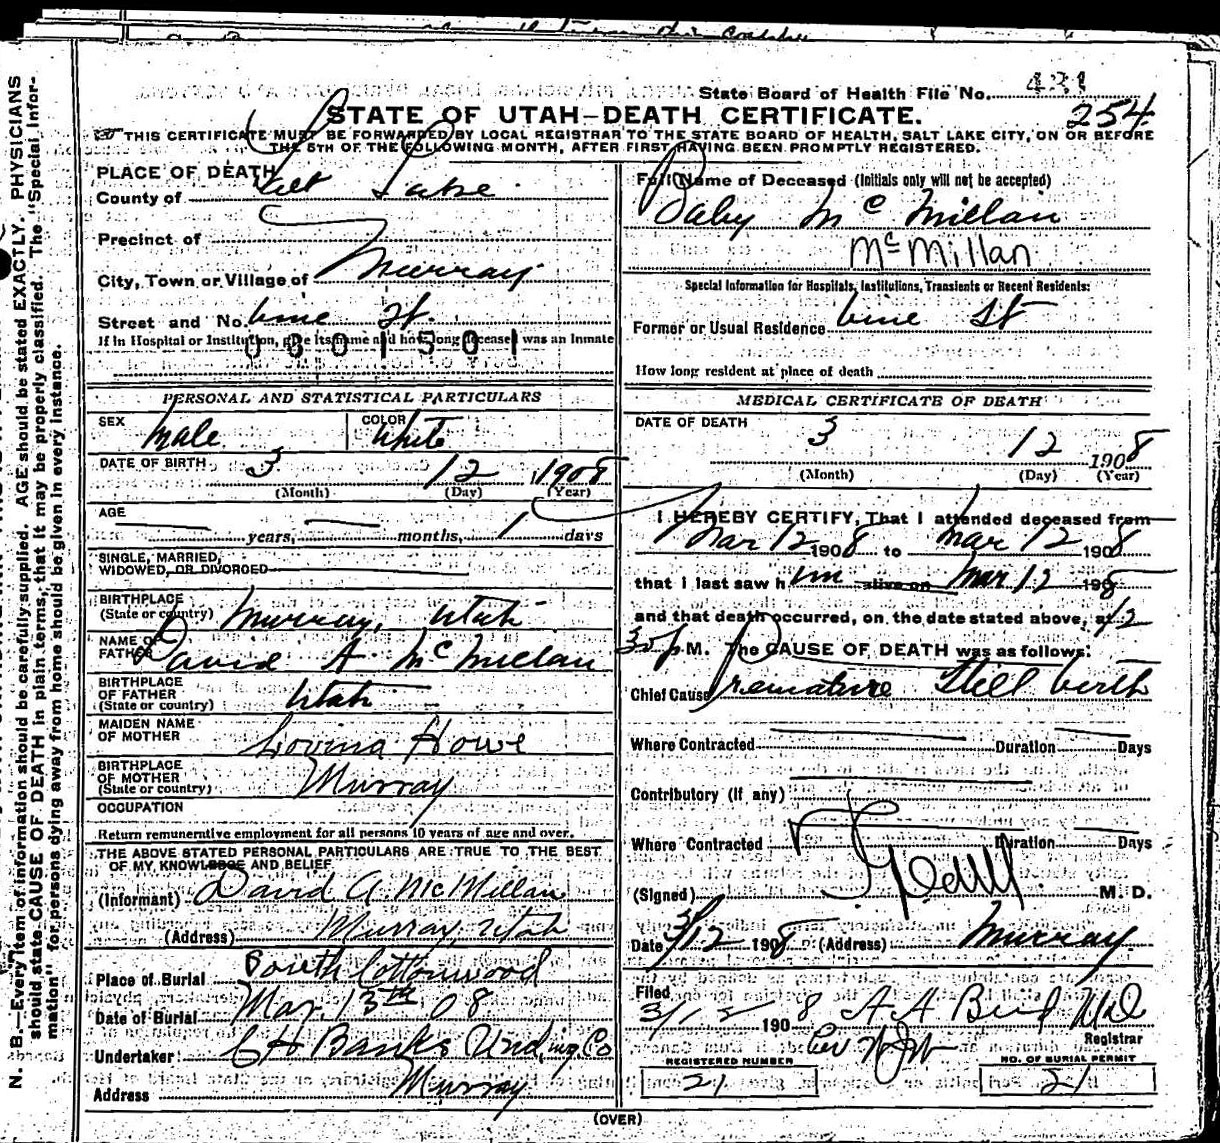 State Board of Health File No. 431
254
STATE OF UTAH-DEATH CERTIFICATE.
THIS CERTIFICATE MUST BE FORWARDED BY LOCAL REGISTRAR TO THE STATE BOARD OF HEALTH, SALT LAKE CITY, ON OR BEFORE
THE 5TH OF THE FOLLOWING MONTH, AFTER FIRST HAVING BEEN PROMPTLY REGISTERED.
PLACE OF DEATH
County of Salt Lake
Precinct of
City, Town or Village of Murray
Street and No. Vine St.
If in Hospital or Institution, give its name and how long deceased was an Inmate
0601501
PERSONAL AND STATISTICAL PARTICULARS
SEX Male
COLOR White
DATE OF BIRTH 3 12 1908
(Month) (Day) (Year)
AGE
years, months, 1 days
SINGLE, MARRIED,
WIDOWED, OR DIVORCED
BIRTHPLACE
(State or country) Murray, Utah
NAME OF
FATHER David A. McMillan
BIRTHPLACE
OF FATHER
(State or country) Utah
MAIDEN NAME
OF MOTHER Lovina Howe
BIRTHPLACE
OF MOTHER
(State or country) Murray
OCCUPATION
Return remunerative employment for all persons 10 years of age and over.
THE ABOVE STATED PERSONAL PARTICULARS ARE TRUE TO THE BEST
OF MY KNOWLEDGE AND BELIEF
(Informant) David A. McMillan
(Address) Murray, Utah
Place of Burial South Cottonwood
Date of Burial Mar. 13th 08
Undertaker: C H Banks Unding Co
Address Murray
Full Name of Deceased (Initials only will not be accepted)
Baby McMillan
McMillan
Special Information for Hospitals, Institutions, Transients or Recent Residents:
Former or Usual Residence Vine St
How long resident at place of death
MEDICAL CERTIFICATE OF DEATH
DATE OF DEATH
3 12 1908
(Month) (Day) (Year)
I HEREBY CERTIFY, That I attended deceased from
Mar 12 1908 to Mar 12 1908
that I last saw him alive on Mar 12 1908
and that death occurred, on the date stated above, at 12
30 P M. The CAUSE OF DEATH was as follows:
Chief Cause Premature Still birth
Where Contracted Duration Days
Contributory (If any)
Where Contracted Duration Days
(Signed) M. D.
Date 3/12 1908 (Address) Murray
Filed
3/12 1908 A A Bird MD
Registrar
REGISTERED NUMBER
21
NO. OF BURIAL PERMIT
21
(OVER)
N. B.—Every item of information should be carefully supplied. AGE should be stated EXACTLY. PHYSICIANS
should state CAUSE OF DEATH in plain terms, that it may be properly classified. The "Special Infor-
mation" for persons dying away from home should be given in every instance.